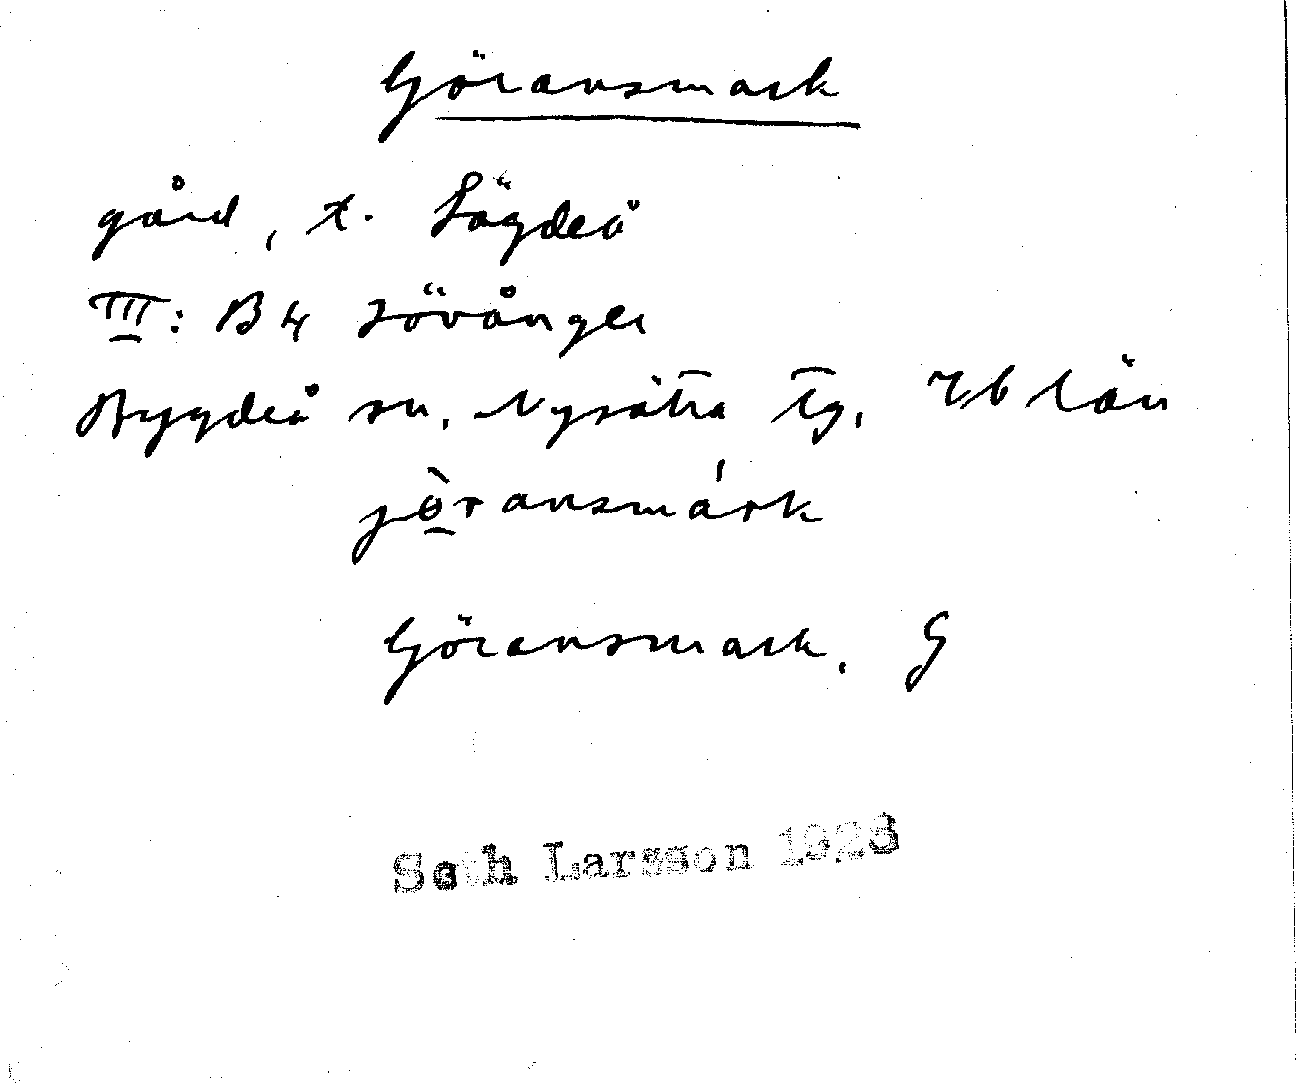 Göransmark
gård, t. Sågdeå
III: B4 Lövånger
Bygdeå sn, Nysätra tg, Vb län
jö̀ransmárk
Göransmark. G
Seth Larsson 1923